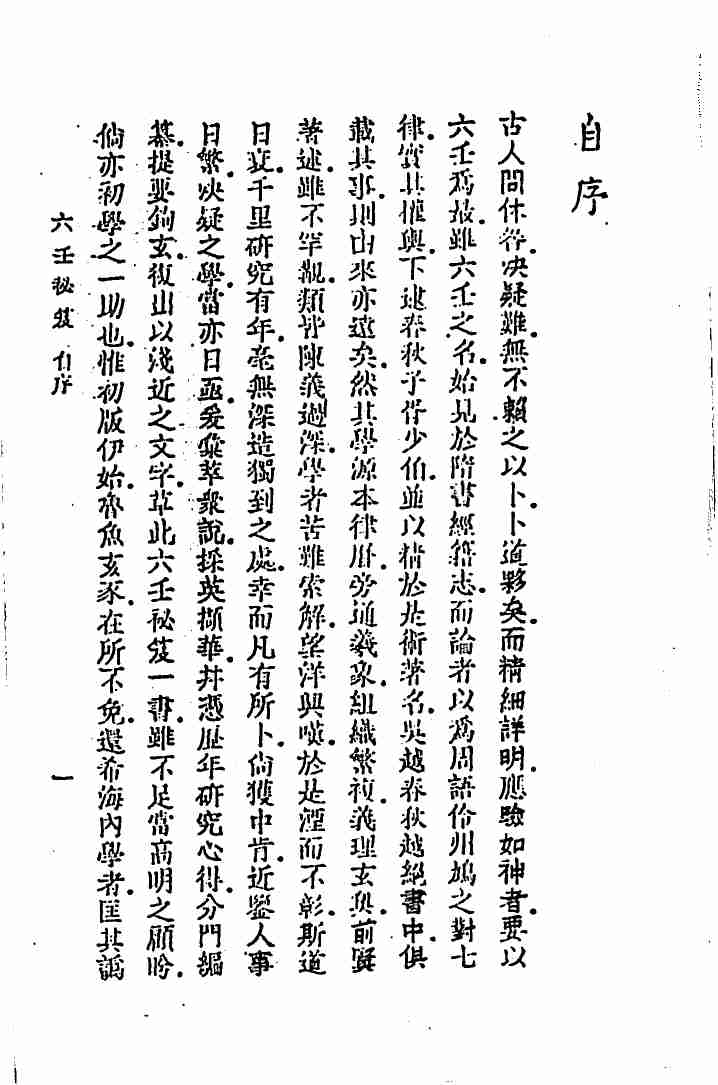 自序
古人問休咎決疑難無不賴之以卜卜道夥矣而精細詳明應驗如神者要以
六壬爲最雖六壬之名始見於隋書經籍志而論者以爲周語伶州鳩之對七
律實其權輿下逮春秋子胥少伯並以精於是術著名吳越春秋越絕書中俱
載其事則由來亦遠矣然其學源本律曆旁通羲象組織繁複義理玄奥前賢
著述雖不罕覯類皆陳義過深學者苦難索解望洋興嘆於是湮而不彰斯道
日衰千里研究有年毫無深造獨到之處幸而凡有所卜倘獲中肯近鑒人事
日繁決疑之學當亦日亟爰彙萃衆說採英擷華并憑歷年研究心得分門編
纂提要鉤玄復出以淺近之文字草此六壬祕笈一書雖不足當高明之顧盼
倘亦初學之一助也惟初版伊始魯魚亥豕在所不免還希海內學者匡其譌
六壬祕笈 自序
一